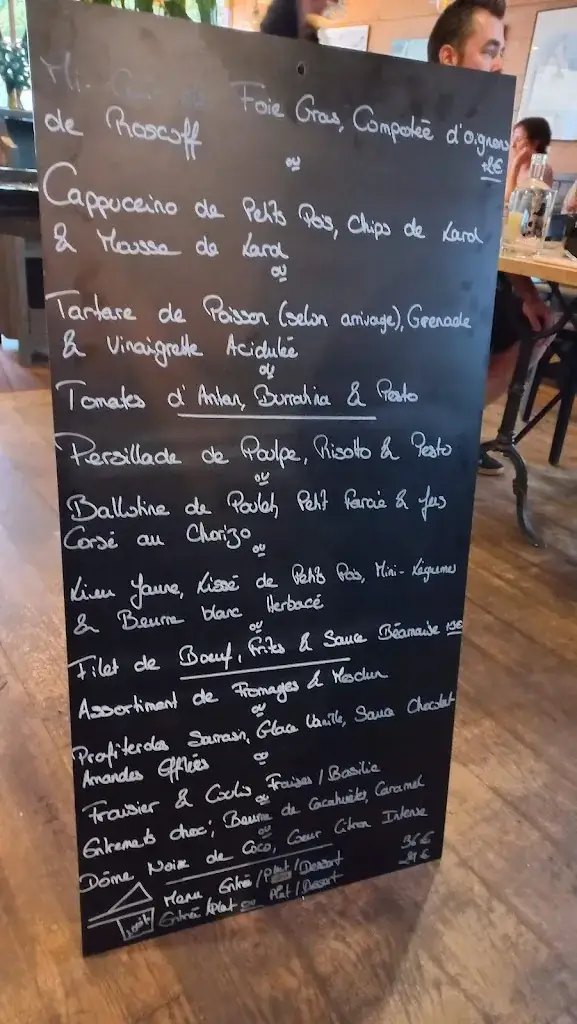 Mi- Foie Gras, Compotée d'oignons
de Roscoff +2€
ou
Cappuccino de Petits Pois, Chips de Lard
& Mousse de Lard
ou
Tartare de Poisson (selon arrivage), Grenade
& Vinaigrette Acidulée
ou
Tomates d'Antan, Burratina & Pesto
Persillade de Poulpe, Risotto & Pesto
ou
Ballotine de Poulet, Petit Farcie & Jus
Corsé au Chorizo
ou
Lieu Jaune, Lissé de Petits Pois, Mini-Légumes
& Beurre blanc Herbacé
ou
Filet de Boeuf, Frites & Sauce Béarnaise
Assortiment de Fromages & Mesclun
ou
Profiteroles Sarrasin, Glace Vanille, Sauce Chocolat
Amandes Effilées
ou
Fraisier & Coulis Fraises/Basilic
ou
Entremets choc', Beurre de Cacahuètes, Caramel
ou
Dôme Noix de Coco, Coeur Citron Intense
Menu Entrée/Plat/Dessert 36€
Entrée/Plat ou Plat/Dessert